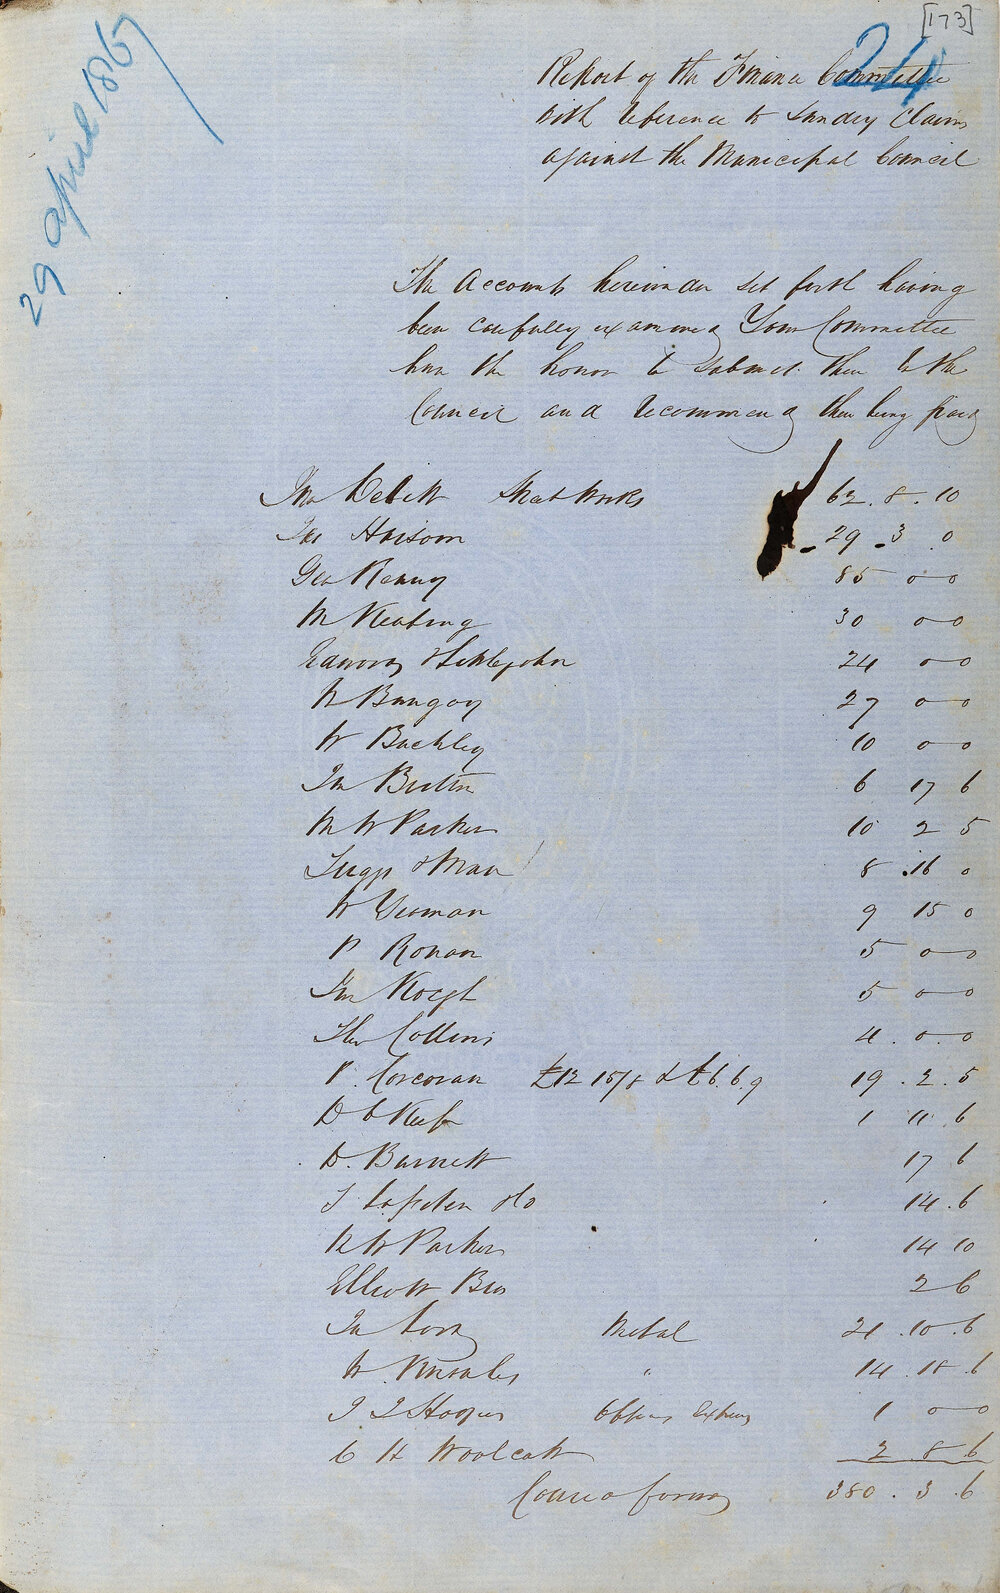 [173]
24
29 April 1867
Report of the Finance Committee
with reference to Sundry Claims
against the Municipal Council
The Accounts hereunder set forth having
been carefully examined Your Committee
have the honor to submit them to the
Council and recommend their being paid
Jno Streetworks 62 . 8 . 10
Jas Hanson 29 - 3 . 0
Geo Kenny 85 0 0
M Keating 30 0 0
Edward Littlejohn 24 0 0
27 0 0
W Buckley 10 0 0
Jno 6 17 6
W Parker 10 2 5
8 . 16 0
W Yeoman 9 15 0
P Ronan 5 0 0
Jno Keogh 5 0 0
Thos Collins 4 . 0 . 0
P. Corcoran £12 15/8 & £6. 6. 9 19 . 2 . 5
D O Keefe 1 11 6
D. Barnett 17 6
14 . 6
W Parker 14 10
Elliott Bros 2 6
Jno Metal 21 . 10 . 6
W. " 14 . 18 . 6
Hooper Office 1 0 0
C H Woolcott 2 8 6
Carried forward 380 . 3 . 6